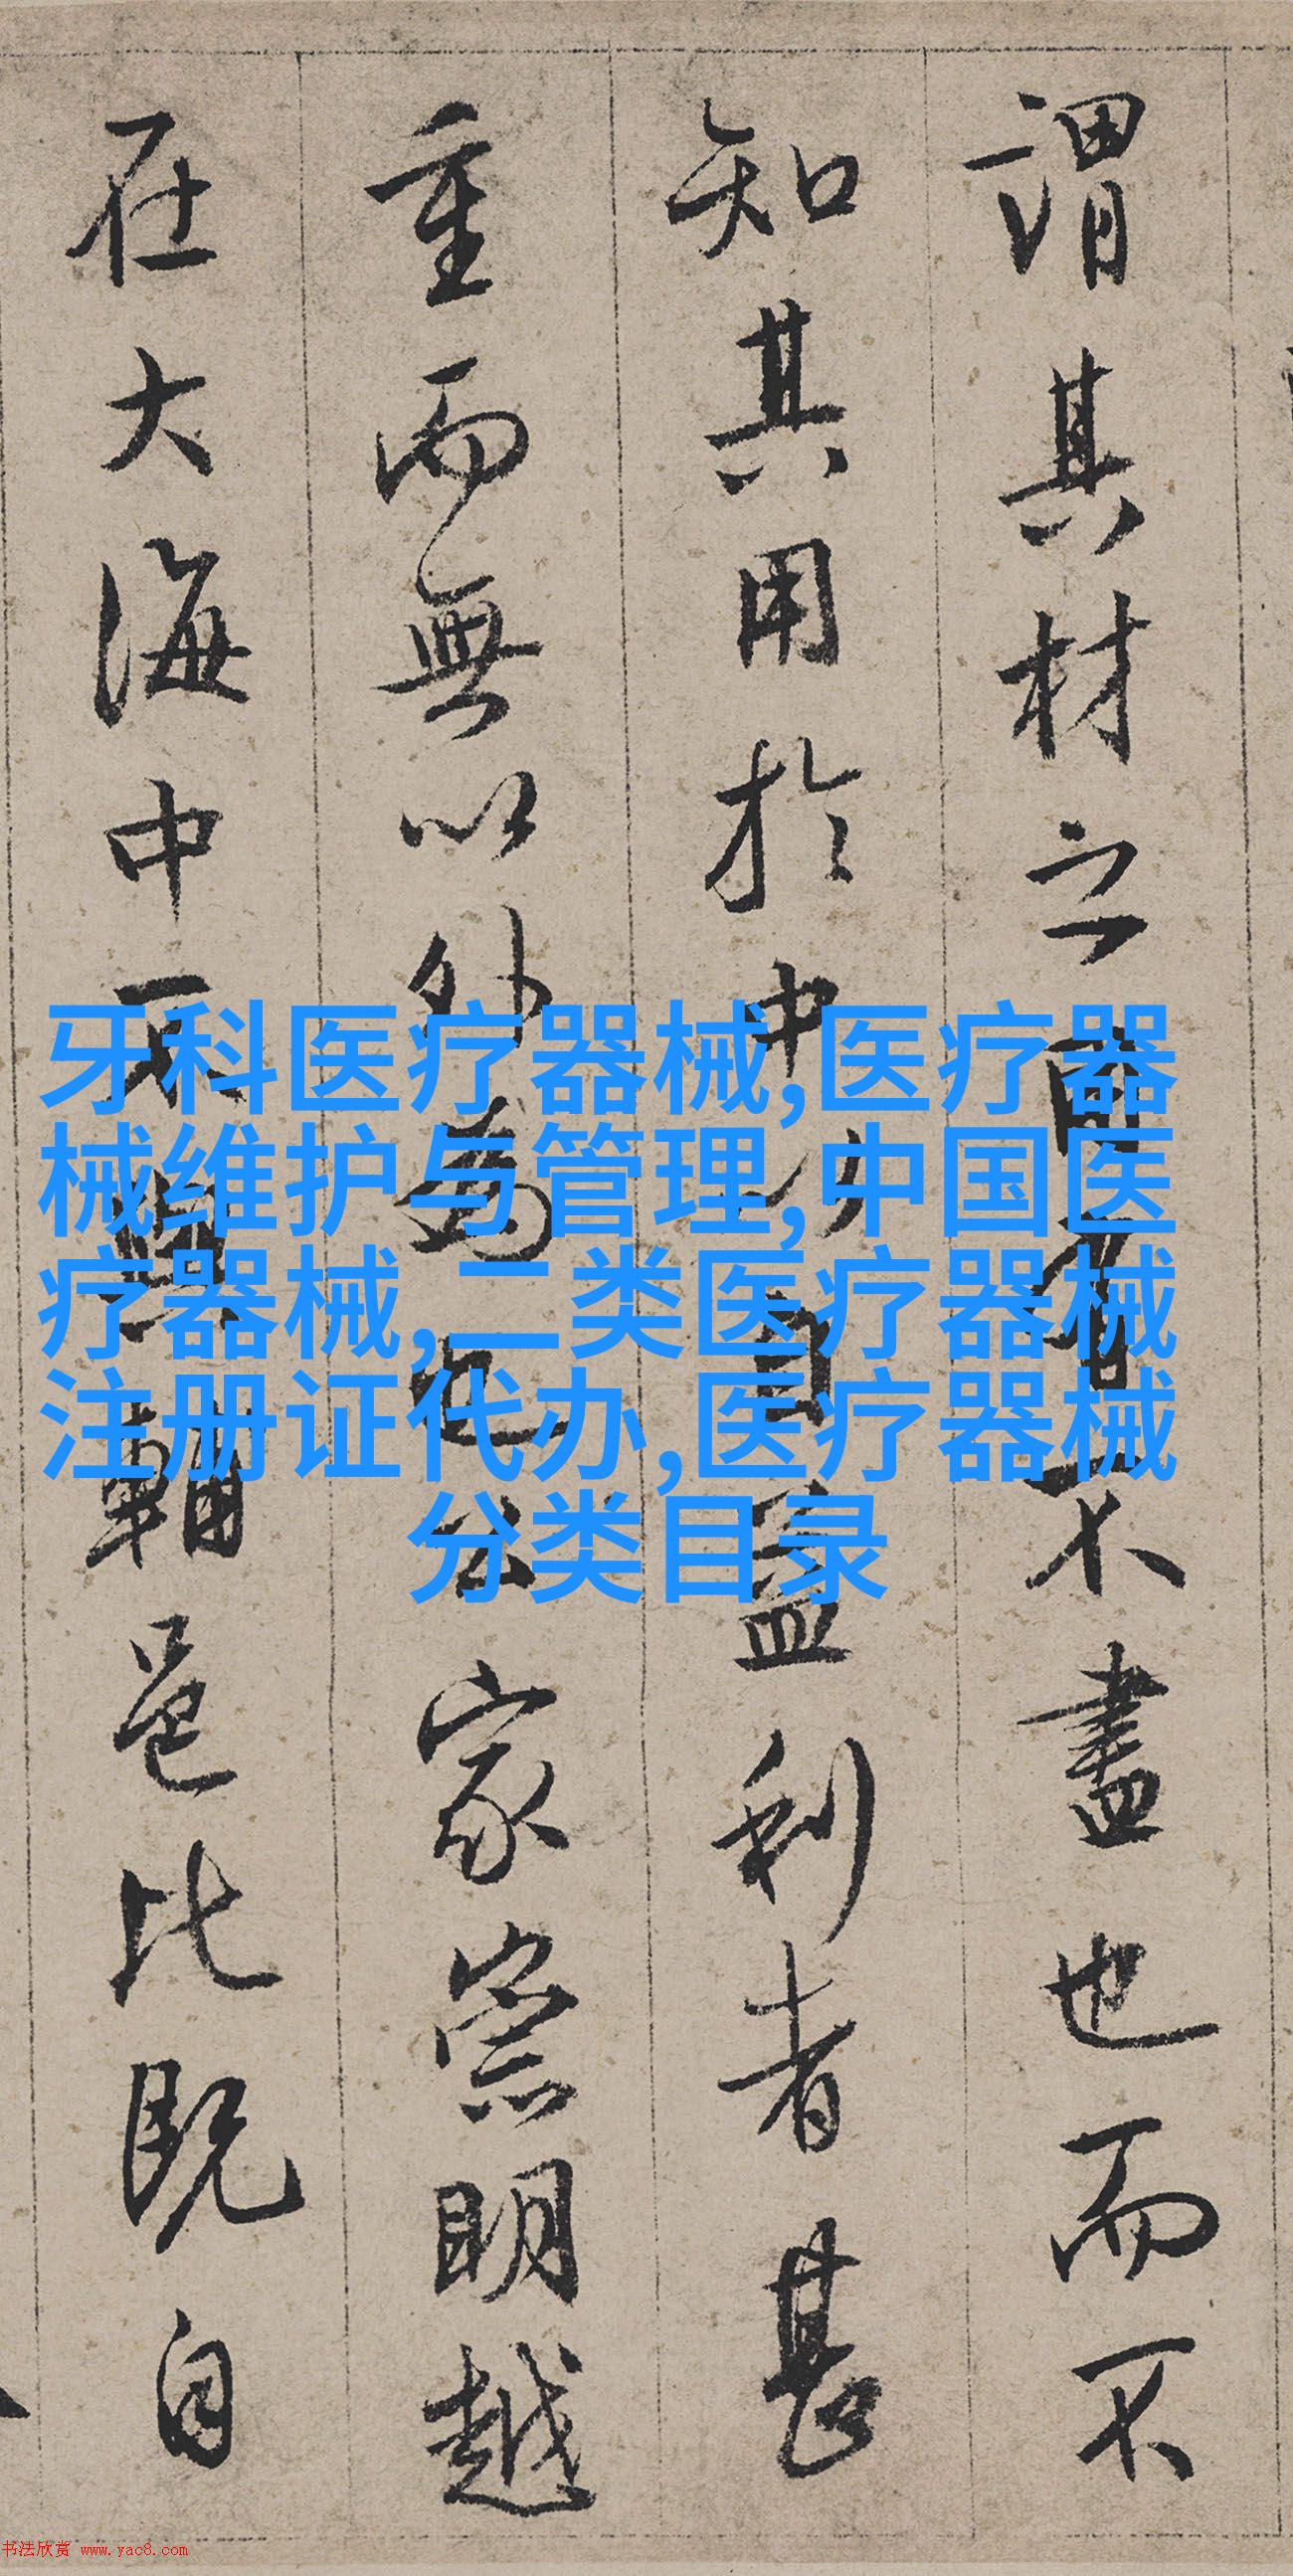 牙科医疗器械,医疗器
械维护与管理,中国医
疗器械,二类医疗器械
注册证代办,医疗器械
分类目录
謂其材之不盡也而不
知其用於中以自益利者甚
重而無以外為也公家崇明越
在大海中不與輔邑比既自
书法欣赏 www.yac8.com